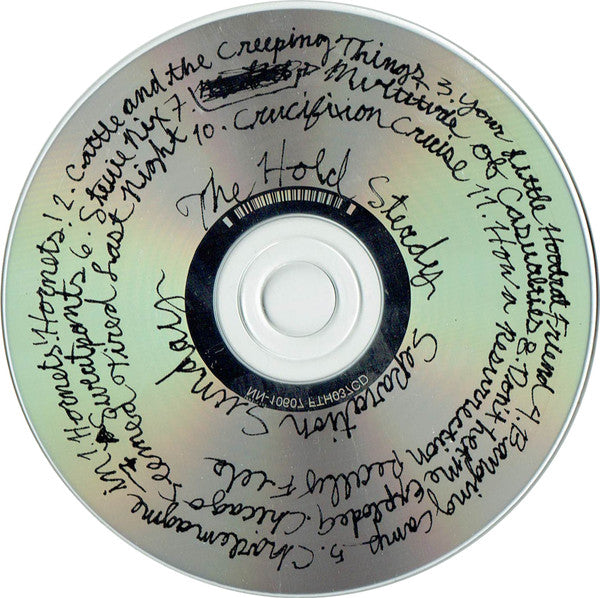 The Hold Steady
Separation Sunday
1. Hornets! Hornets! 2. Cattle and the Creeping Things 3. Your Little Hoodrat Friend 4. Banging Camp 5. Charlemagne in
Sweatpants 6. Stevie Nix 7. Multitude of Casualties 8. Don't Let me Explode 9. Chicago
Seemed Tired Last Night 10. Crucifixion Cruise 11. How a Resurrection Really Feels
FTH037CD